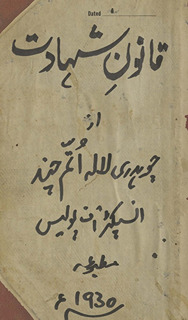 Dated
قانونِ شہادت
از
چوہدری لالہ اتم چند
انسپکٹر آف پولیس
مطبوعہ
1930ء